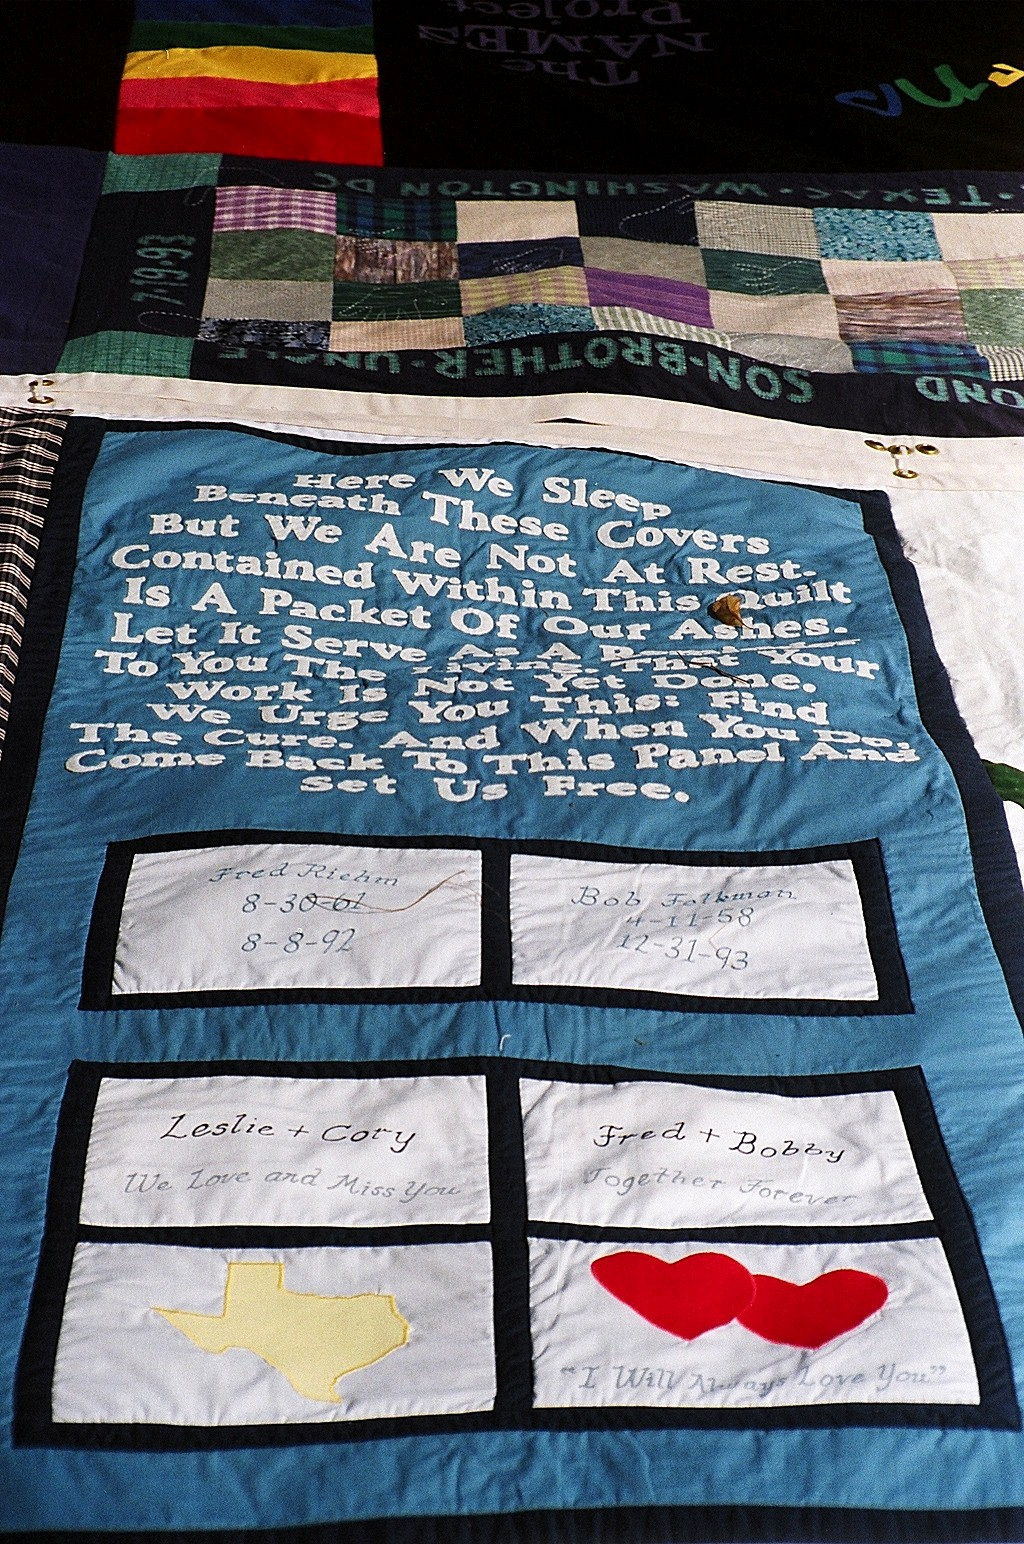 The
NAMES
Project
TEXAS · WASHINGTON DC
7-19-93
SON·BROTHER·UNCLE
OND
Here We Sleep
Beneath These Covers
But We Are Not At Rest.
Contained Within This Quilt
Is A Packet Of Our Ashes.
Let It Serve As A That Your
To You The Living
Work Is Not Yet Done.
We Urge You This: Find
The Cure. And When You Do,
Come Back To This Panel And
Set Us Free.
Fred Riehm
8-30-61
8-8-92
Bob Folkman
4-11-58
12-31-93
Leslie + Cory
We Love and Miss You
Fred + Bobby
Together Forever
"I Will Always Love You"